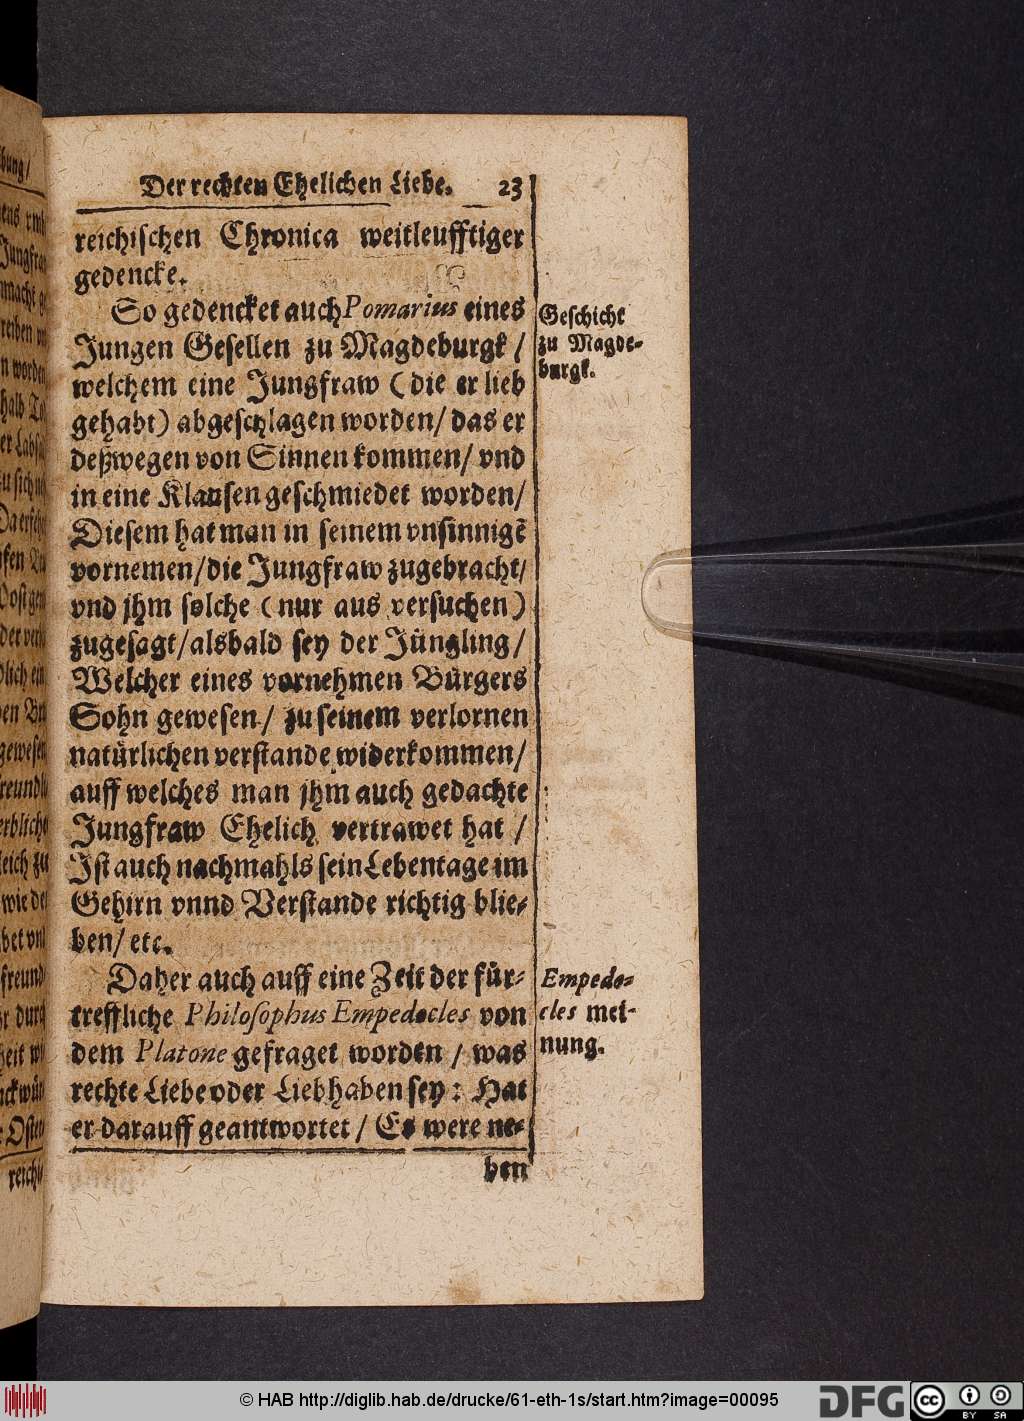 Der rechten Ehelichen Liebe. 23
reichischen Chronica weitleufftiger
gedencke.
So gedencket auch Pomarius eines
Jungen Gesellen zu Magdeburgk /
welchem eine Jungfraw (die er lieb
gehabt) abgeschlagen worden / das er
deßwegen von Sinnen kommen / vnd
in eine Klausen geschmiedet worden /
Diesem hat man in seinem vnsinnigẽ
vornemen / die Jungfraw zugebracht /
vnd jhm solche (nur aus versuchen)
zugesagt / alsbald sey der Jüngling /
Welcher eines vornehmen Bürgers
Sohn gewesen / zu seinem verlornen
natürlichen verstande widerkommen /
auff welches man jhm auch gedachte
Jungfraw Ehelich vertrawet hat /
Ist auch nachmahls sein Lebentage im
Gehirn vnnd Verstande richtig blie-
ben / etc.
Daher auch auff eine Zeit der für-
treffliche Philosophus Empedocles von
dem Platone gefraget worden / was
rechte Liebe oder Liebhaben sey : Hat
er darauff geantwortet / Es were ne-
ben
Geschicht
zu Magde-
burgk.
Empedo-
cles mei-
nung.
© HAB http://diglib.hab.de/drucke/61-eth-1s/start.htm?image=00095
DFG
cc BY SA